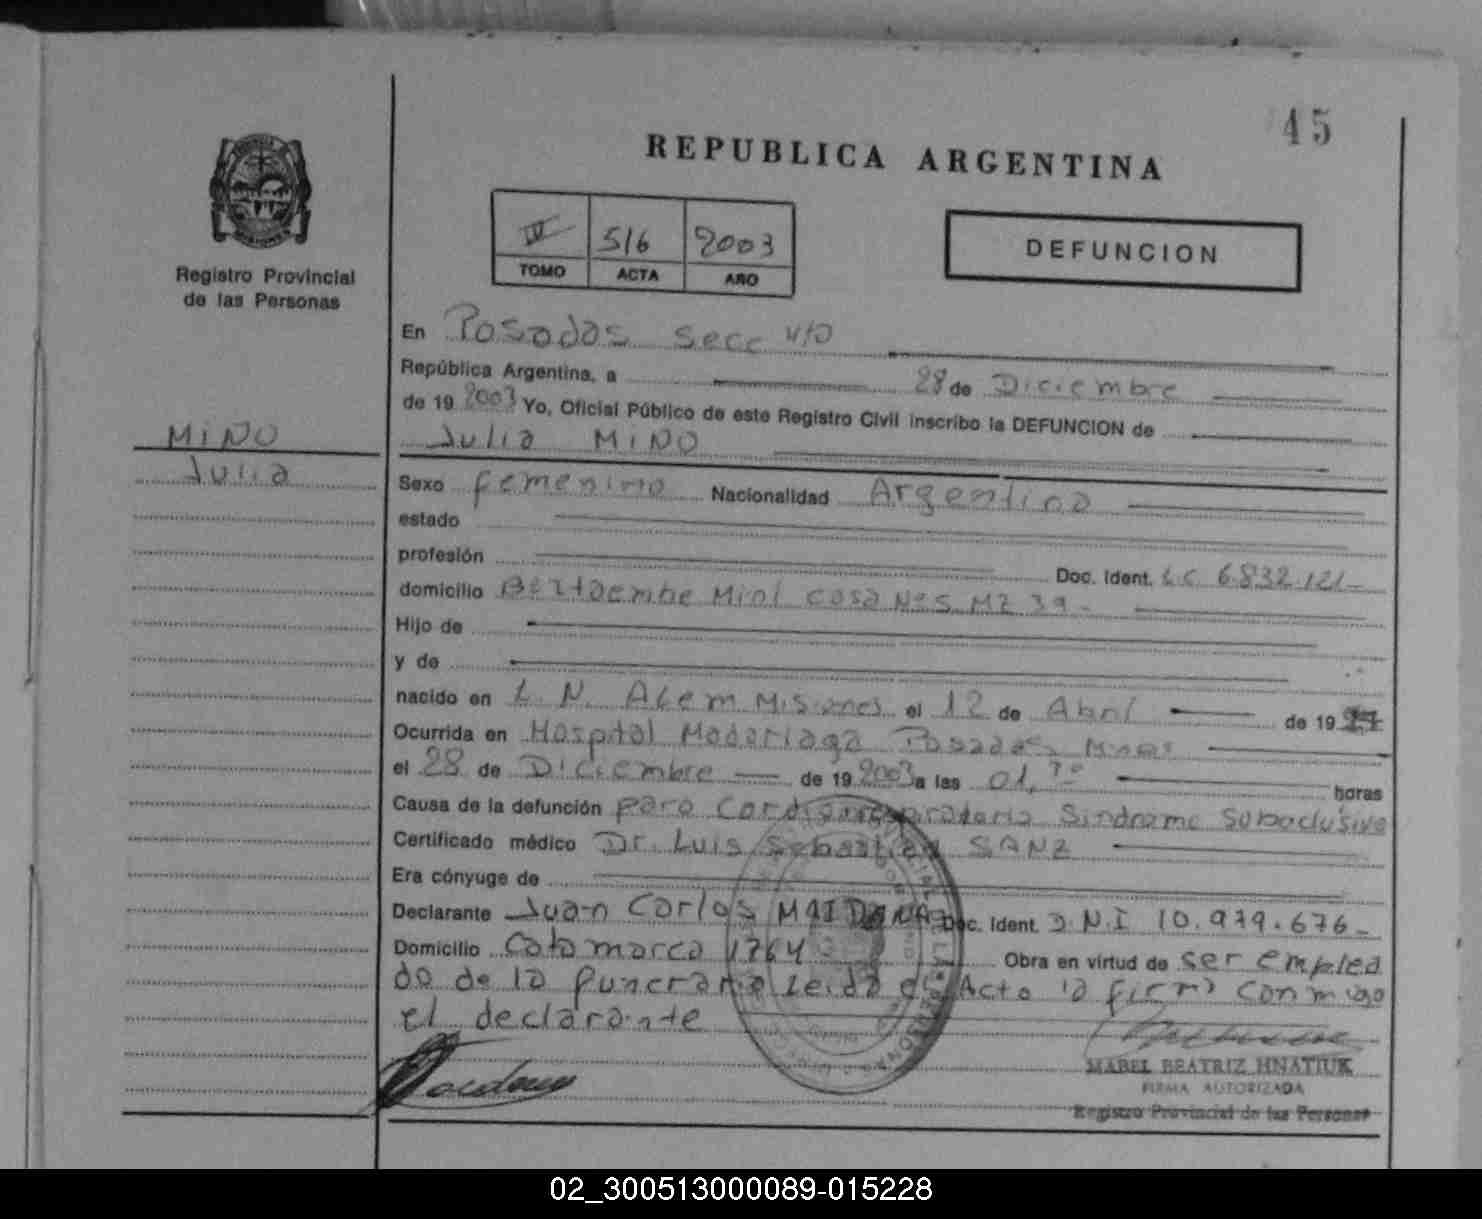 45
REPUBLICA ARGENTINA
IV 516 2003
TOMO ACTA AÑO
DEFUNCION
Registro Provincial
de las Personas
MIÑO
Julia
En Posadas Secc
República Argentina, a 28 de Diciembre
de 19 2003 Yo, Oficial Público de este Registro Civil inscribo la DEFUNCION de
Julia MIÑO
Sexo femenino Nacionalidad Argentina
estado
profesión Doc. Ident. L.C 6.832.121
domicilio casa Nº 5 MZ 39
Hijo de
y de
nacido en L. N. ALem Misiones el 12 de Abril de 19
Ocurrida en Hospital Madariaga Posadas
el 28 de Diciembre de 19 2003 a las 01,30 horas
Causa de la defunción paro Cardiorespiratorio Sindrome Suboclusivo
Certificado médico Dr. Luis Sebastian SANZ
Era cónyuge de
Declarante Juan Carlos MAIDANA Doc. Ident. D.N.I 10.979.676
Domicilio Catamarca 1764 Obra en virtud de ser emplea
do de la funeraria Leida el Acta la firma conmigo
el declarante
MABEL BEATRIZ HNATIUK
FIRMA AUTORIZADA
Registro Provincial de las Personas
02_300513000089-015228